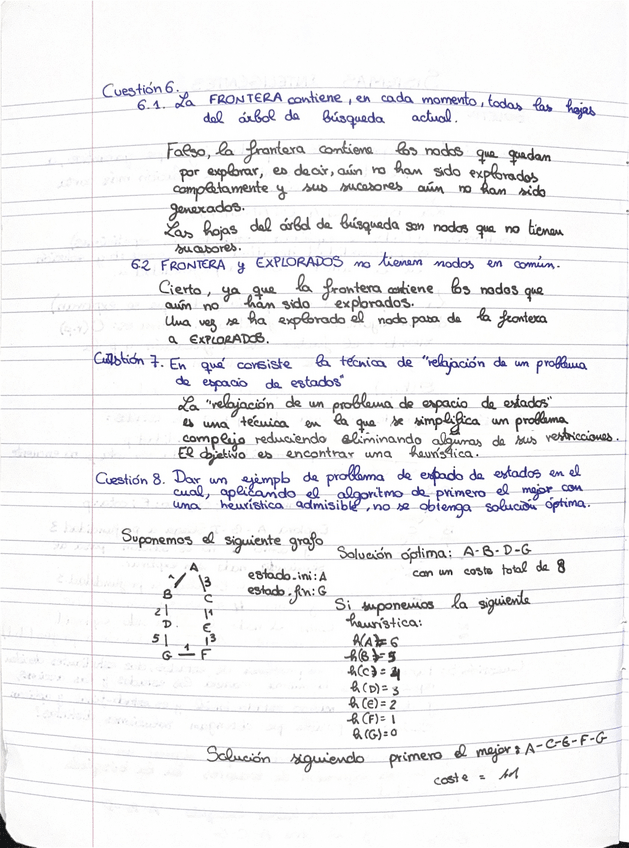 Cuestión 6.
6.1. La FRONTERA contiene, en cada momento, todas las hojas
del árbol de búsqueda actual.
Falso, la frontera contiene los nodos que quedan
por explorar, es decir, aún no han sido explorados
completamente y sus sucesores aún no han sido
generados.
Las hojas del árbol de búsqueda son nodos que no tienen
sucesores.
6.2 FRONTERA y EXPLORADOS no tienen nodos en común.
Cierto, ya que la frontera contiene los nodos que
aún no han sido explorados.
Una vez se ha explorado el nodo pasa de la frontera
a EXPLORADOS.
Cuestión 7. En qué consiste la técnica de "relajación de un problema
de espacio de estados"
La "relajación de un problema de espacio de estados"
es una técnica en la que se simplifica un problema
complejo reduciendo eliminando algunas de sus restricciones.
El objetivo es encontrar una heurística.
Cuestión 8. Dar un ejemplo de problema de espacio de estados en el
cual, aplicando el algoritmo de primero el mejor con
una heurística admisible, no se obtenga solución óptima.
Suponemos el siguiente grafo
Solución óptima: A-B-D-G
con un coste total de 8
estado.ini: A
estado.fin: G
A
1 3
B C
2 1
D E
5 3
G 1 F
Si suponemos la siguiente
heurística:
h(A) = 6
h(B) = 5
h(C) = 4
h(D) = 3
h(E) = 2
h(F) = 1
h(G) = 0
Solución siguiendo primero el mejor: A-C-E-F-G
coste = 11